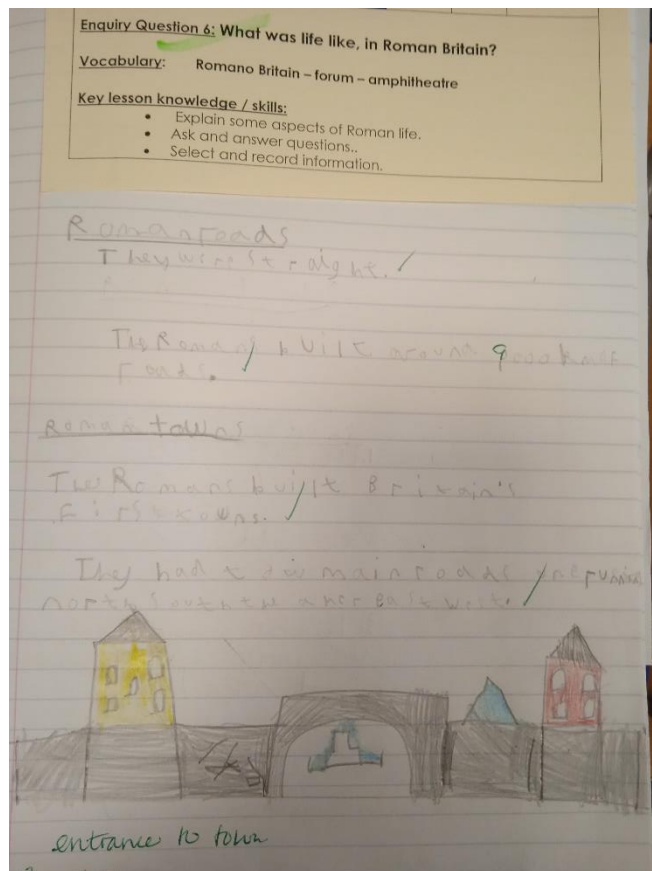 Enquiry Question 6: What was life like, in Roman Britain?
Vocabulary: Romano Britain – forum – amphitheatre
Key lesson knowledge / skills:
• Explain some aspects of Roman life.
• Ask and answer questions..
• Select and record information.
Roman roads
They were straight.
The Romans built around 9000
roads.
Roman towns
The Romans built Britain's
first towns.
They had main roads
north south the east west.
entrance to town